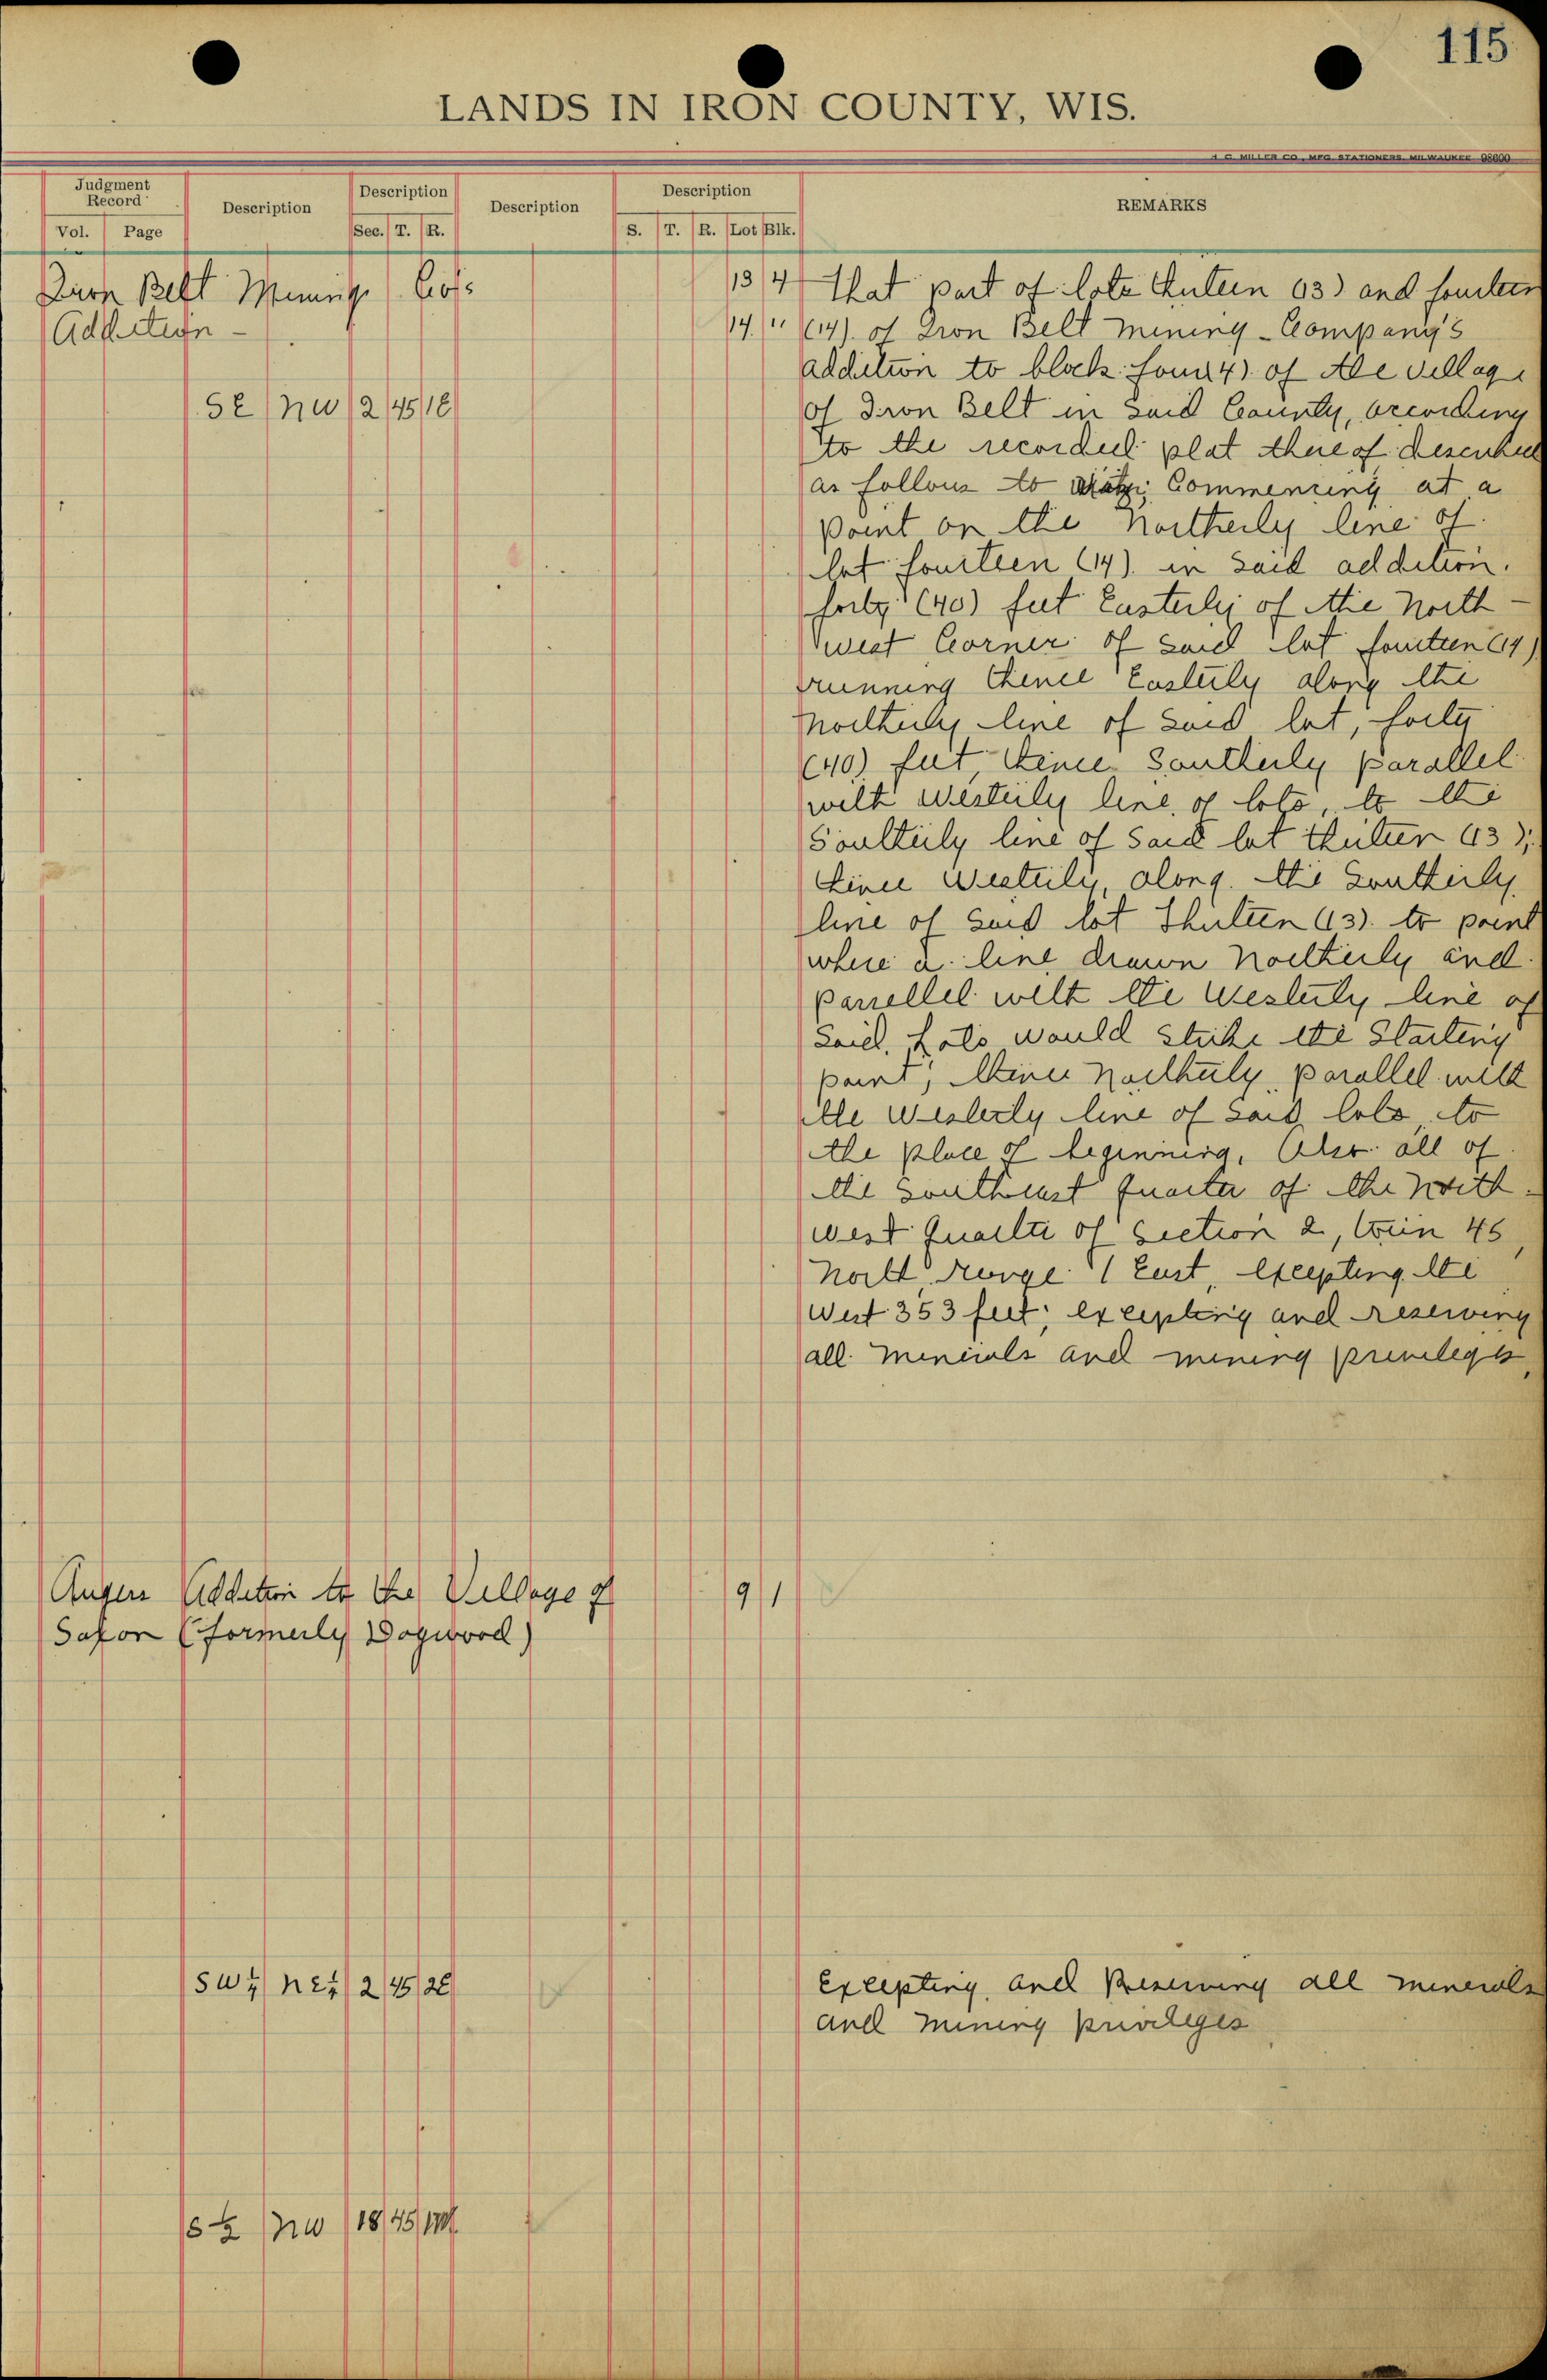 115
LANDS IN IRON COUNTY, WIS.
MILLER CO., MFG. STATIONERS, MILWAUKEE 98600
Judgment Record
Vol. Page
Description
Description
Sec. T. R.
Description
Description
S. T. R. Lot Blk.
REMARKS
Iron Belt Mining Co's
Addition -
SE NW 2 45 1E
13 4 That part of lots thirteen (13) and fourteen
14 " (14) of Iron Belt Mining Company's
addition to block four (4) of the village
of Iron Belt in said County, according
to the recorded plat thereof described
as follows to Commencing at a
point on the Northerly line of
lot fourteen (14) in said addition.
forty (40) feet Easterly of the North-
west Corner of said lot fourteen (14)
running thence Easterly along the
Northerly line of said lot, forty
(40) feet, thence Southerly parallel
with Westerly line of lots, to the
Southerly line of said lot thirteen (13);
thence Westerly, along the Southerly
line of said lot Thirteen (13) to point
where a line drawn Northerly and
parrellel with the Westerly line of
said lots would strike the Starting
point; thence Northerly parallel with
the Westerly line of said lots to
the place of beginning, Also all of
the Southeast quarter of the North-
west quarter of Section 2, town 45
North, Range 1 East, excepting the
West 353 feet; excepting and reserving
all minerals and mining privileges,
Angers Addition to the Village of
Saxon (formerly Dogwood)
9 1
SW¼ NE¼ 2 45 2E
Excepting and Reserving all minerals
and mining privileges
S½ NW 18 45